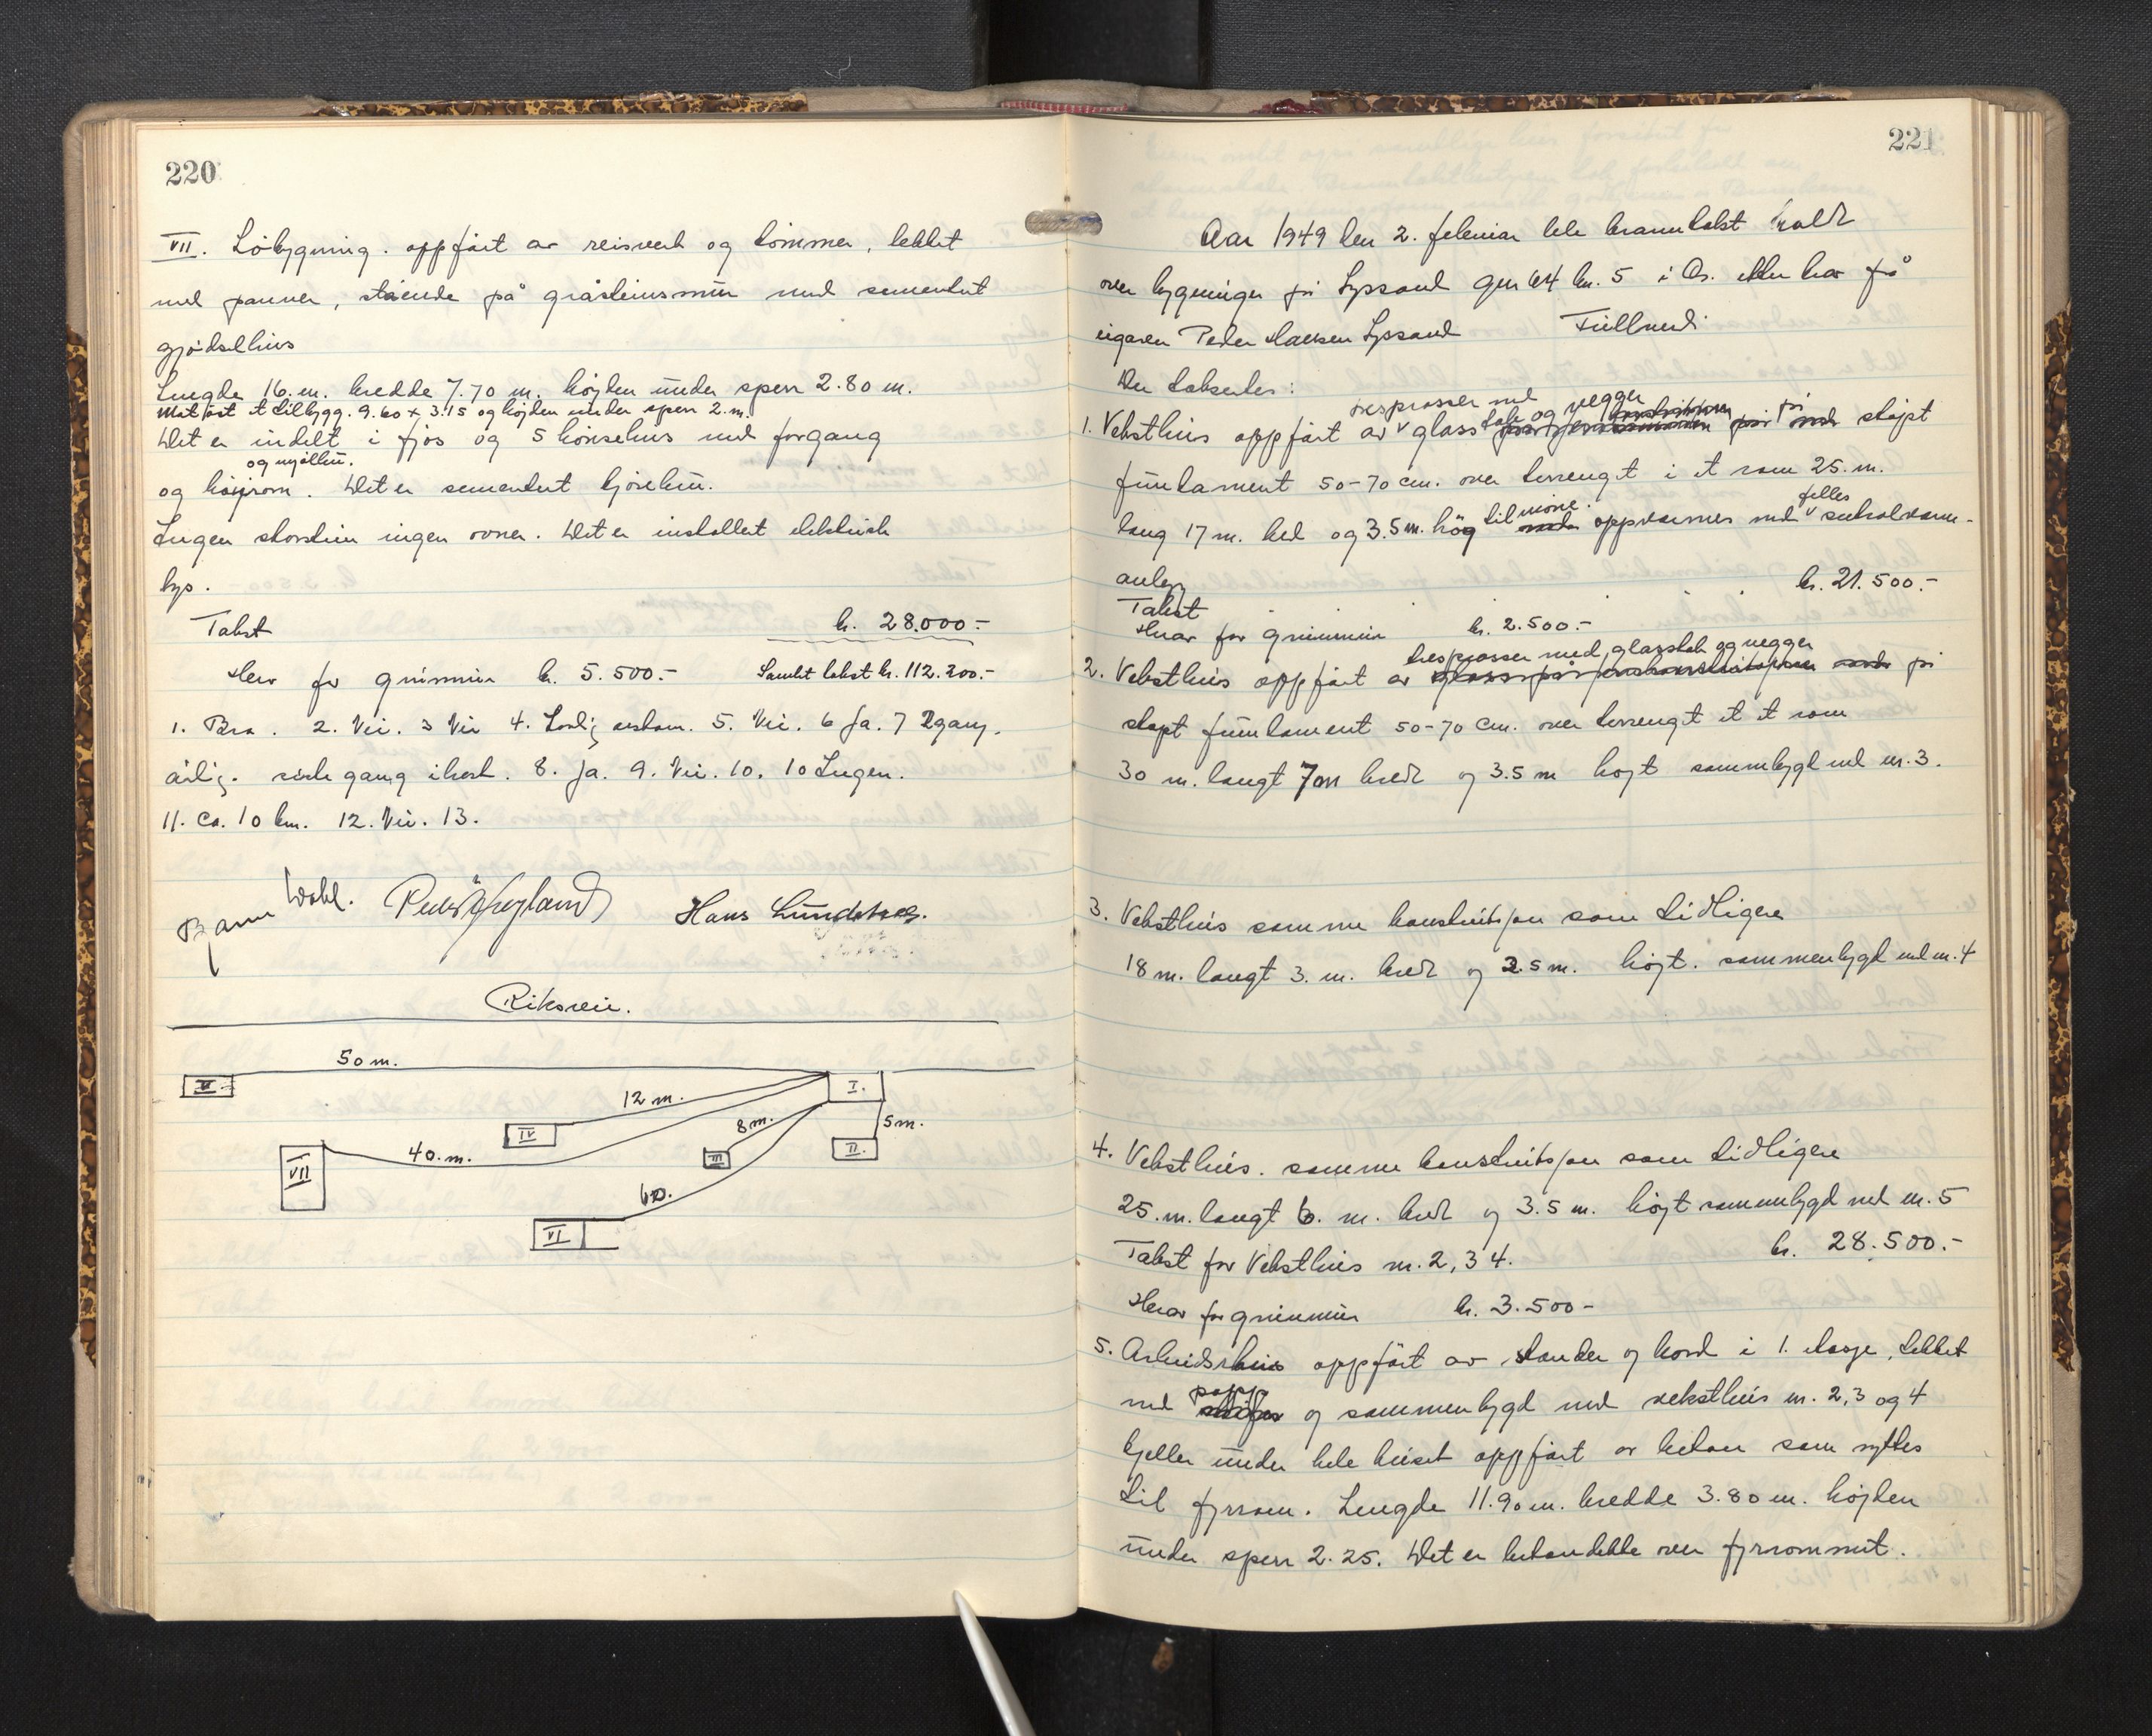 220
VII. Löbygning. oppført av reisverk og tömmer, tekket
med panner, stående på gråsteinsmur med sementert
gjödselhus
Lengde 16.m. bredde 7.70 m. höjden under sperr 2.80 m.
Mot öst et tilbygg. 9.60 x 3.15 og höjden under sperr 2. m.
Det er indelt i fjös og 5 hönsehus med forgang
og mjöllbu.
og höyrom. Det er sementert kjörebru.
Ingen skorstein ingen ovner. Det er installert elektrisk
lys.
Takst kr. 28.000.-
Herav for grunmur kr. 5.500.- Samlet takst kr. 112.200.-
1. Bra. 2. Nei. 3 Nei 4. Lovlig avstan. 5. Nei. 6 Ja. 7 2gang.
årlig. siste gang i höst. 8. Ja. 9. Nei. 10. 10 Ingen.
11. Ca. 10 km. 12. Nei. 13.
Hans
Riksvei.
50 m.
I.
12 m.
IV
8 m.
5 m.
40. m.
III
II.
VII
60.
VI
221
Aar 1949 den 2. februar ble branntakst holdt
over bygninger på Lyssand gnr 64 bn. 5 i Os. etter krav frå
eigaren Peder Hansen Lyssand
Der takseredes:
tresprosser med tak og vegger på
1. Veksthus oppført av glass støpt
fundament 50-70 cm. over terrenget i et rom 25. m.
felles
lang 17 m. bred og 3.5 m. hög til möne. oppvarmes med sentralvarm-
anlegg kr. 21.500.-
Takst
Herav for grunmur kr. 2.500.-
tresprosser med glasstak og vegger
2. Veksthus oppført av på
støpt fundament 50-70 cm. over terrenget et et rom
30 m. langt 7 m bredt og 3.5 m højt sammenbygd med nr. 3.
3. Veksthus samme konstruksjon som tidligere
18 m. langt 3. m. bredt og 2.5 m. højt. sammenbygd med nr. 4
4. Veksthus. samme konstruksjon som tidligere
25. m. langt 6. m. bredt og 3.5 m. højt sammenbygd med nr. 5
Takst for Veksthus nr. 2, 3 4. kr. 28.500.-
Herav for grunmur kr. 3.500-
5. Arbeidshus oppført av stander og bord i 1. etasje, tekket
med papp og sammenbygd med veksthus nr. 2, 3 og 4
kjeller under hele huset oppført av beton som nyttes
til fyrrom. Lengde 11.90 m. bredde 3.80 m. höjden
under sperr 2.25. Det er betondekke over fyrrommet.